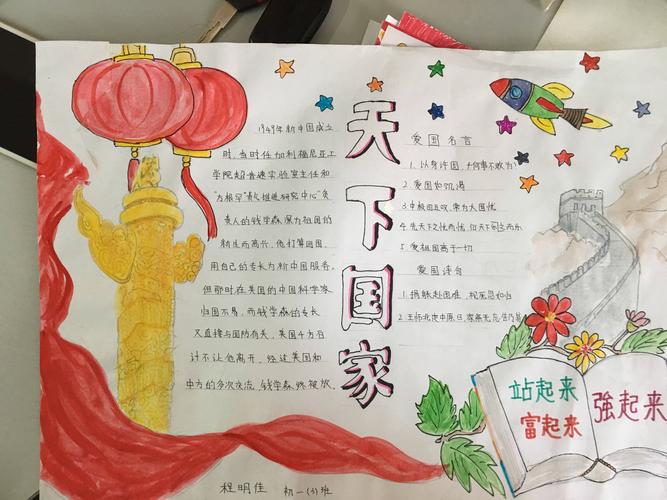 天下国家
1949年新中国成立
时,当时任加利福尼亚工
学院超音速实验室主任和
负
责人的钱学森深为祖国的
新生而高兴,他打算回国,
用自己的专长为新中国服务。
但那时在美国的中国科学家
归国不易,而钱学森的专长
又直接与国防有关,美国千方百
计不让他离开。经过美国和
中方的多次交流,钱学森终被放。
爱国名言
1.以身许国,何事不敢为?
2.爱国如饥渴
3.中夜四五叹,常为大国忧
4.先天下之忧而忧,后天下之乐而乐
5.爱祖国高于一切
爱国诗句
1.捐躯赴国难,视死忽如归
2.王师北定中原日,家祭无忘告乃翁
站起来
富起来
強起来
程明佳 初一(3)班